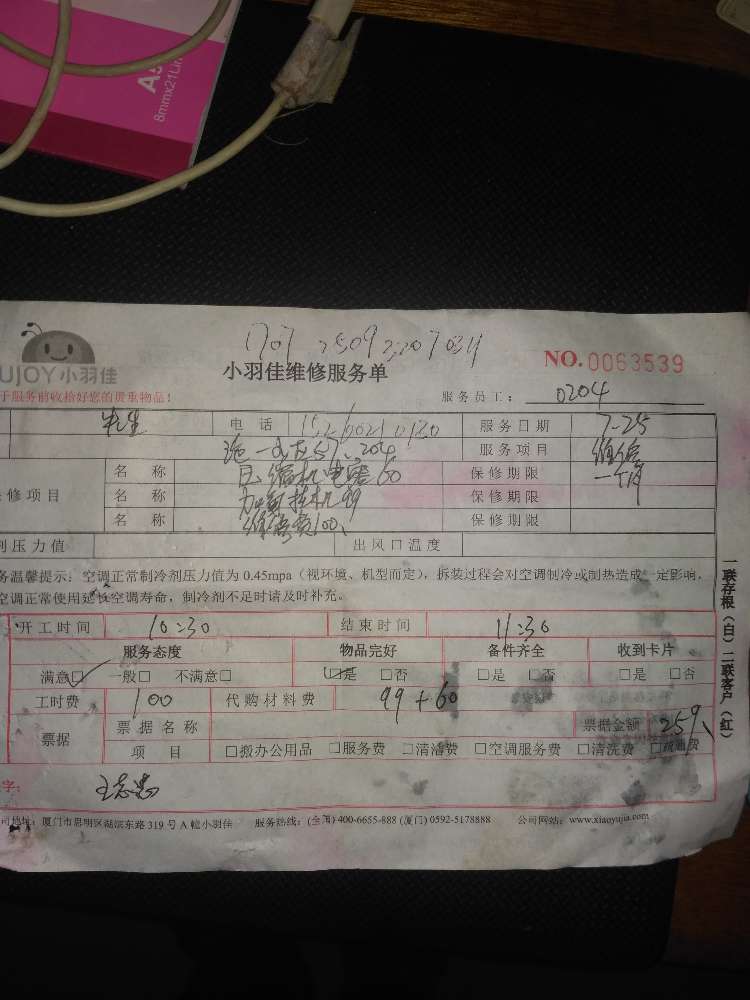 A5
8mmx21Lin
1707 2509 2207 0311
UJOY小羽佳
小羽佳维修服务单
NO.0063539
于服务前收拾好您的贵重物品!
服务员工: 0204
先生 电话 服务日期 7-25
服务项目 维修
修项目 名称 压缩机电容60 保修期限 一个月
名称 99 保修期限
名称 维修费100、 保修期限
剂压力值 出风口温度
务温馨提示:空调正常制冷剂压力值为 0.45mpa(视环境、机型而定),拆装过程会对空调制冷或制热造成一定影响,
空调正常使用延长空调寿命,制冷剂不足时请及时补充。
开工时间 10:30 结束时间 11:30
服务态度 物品完好 备件齐全 收到卡片
满意☑ 一般□ 不满意□ ☑是 □否 □是 □否 □是 □否
工时费 100 代购材料费 99+60
票据 票据名称 票据金额 259、
项目 □搬办公用品 □服务费 □清潘费 □空调服务费 □清洗费 □疏通费
字: 王志忠
司地址:厦门市思明区湖滨东路 319 号 A 幢小羽佳 服务热线:(全国) 400-6655-888 (厦门) 0592-5178888 公司网站:www.xiaoyujia.com
一联存根(白)二联客户(红)